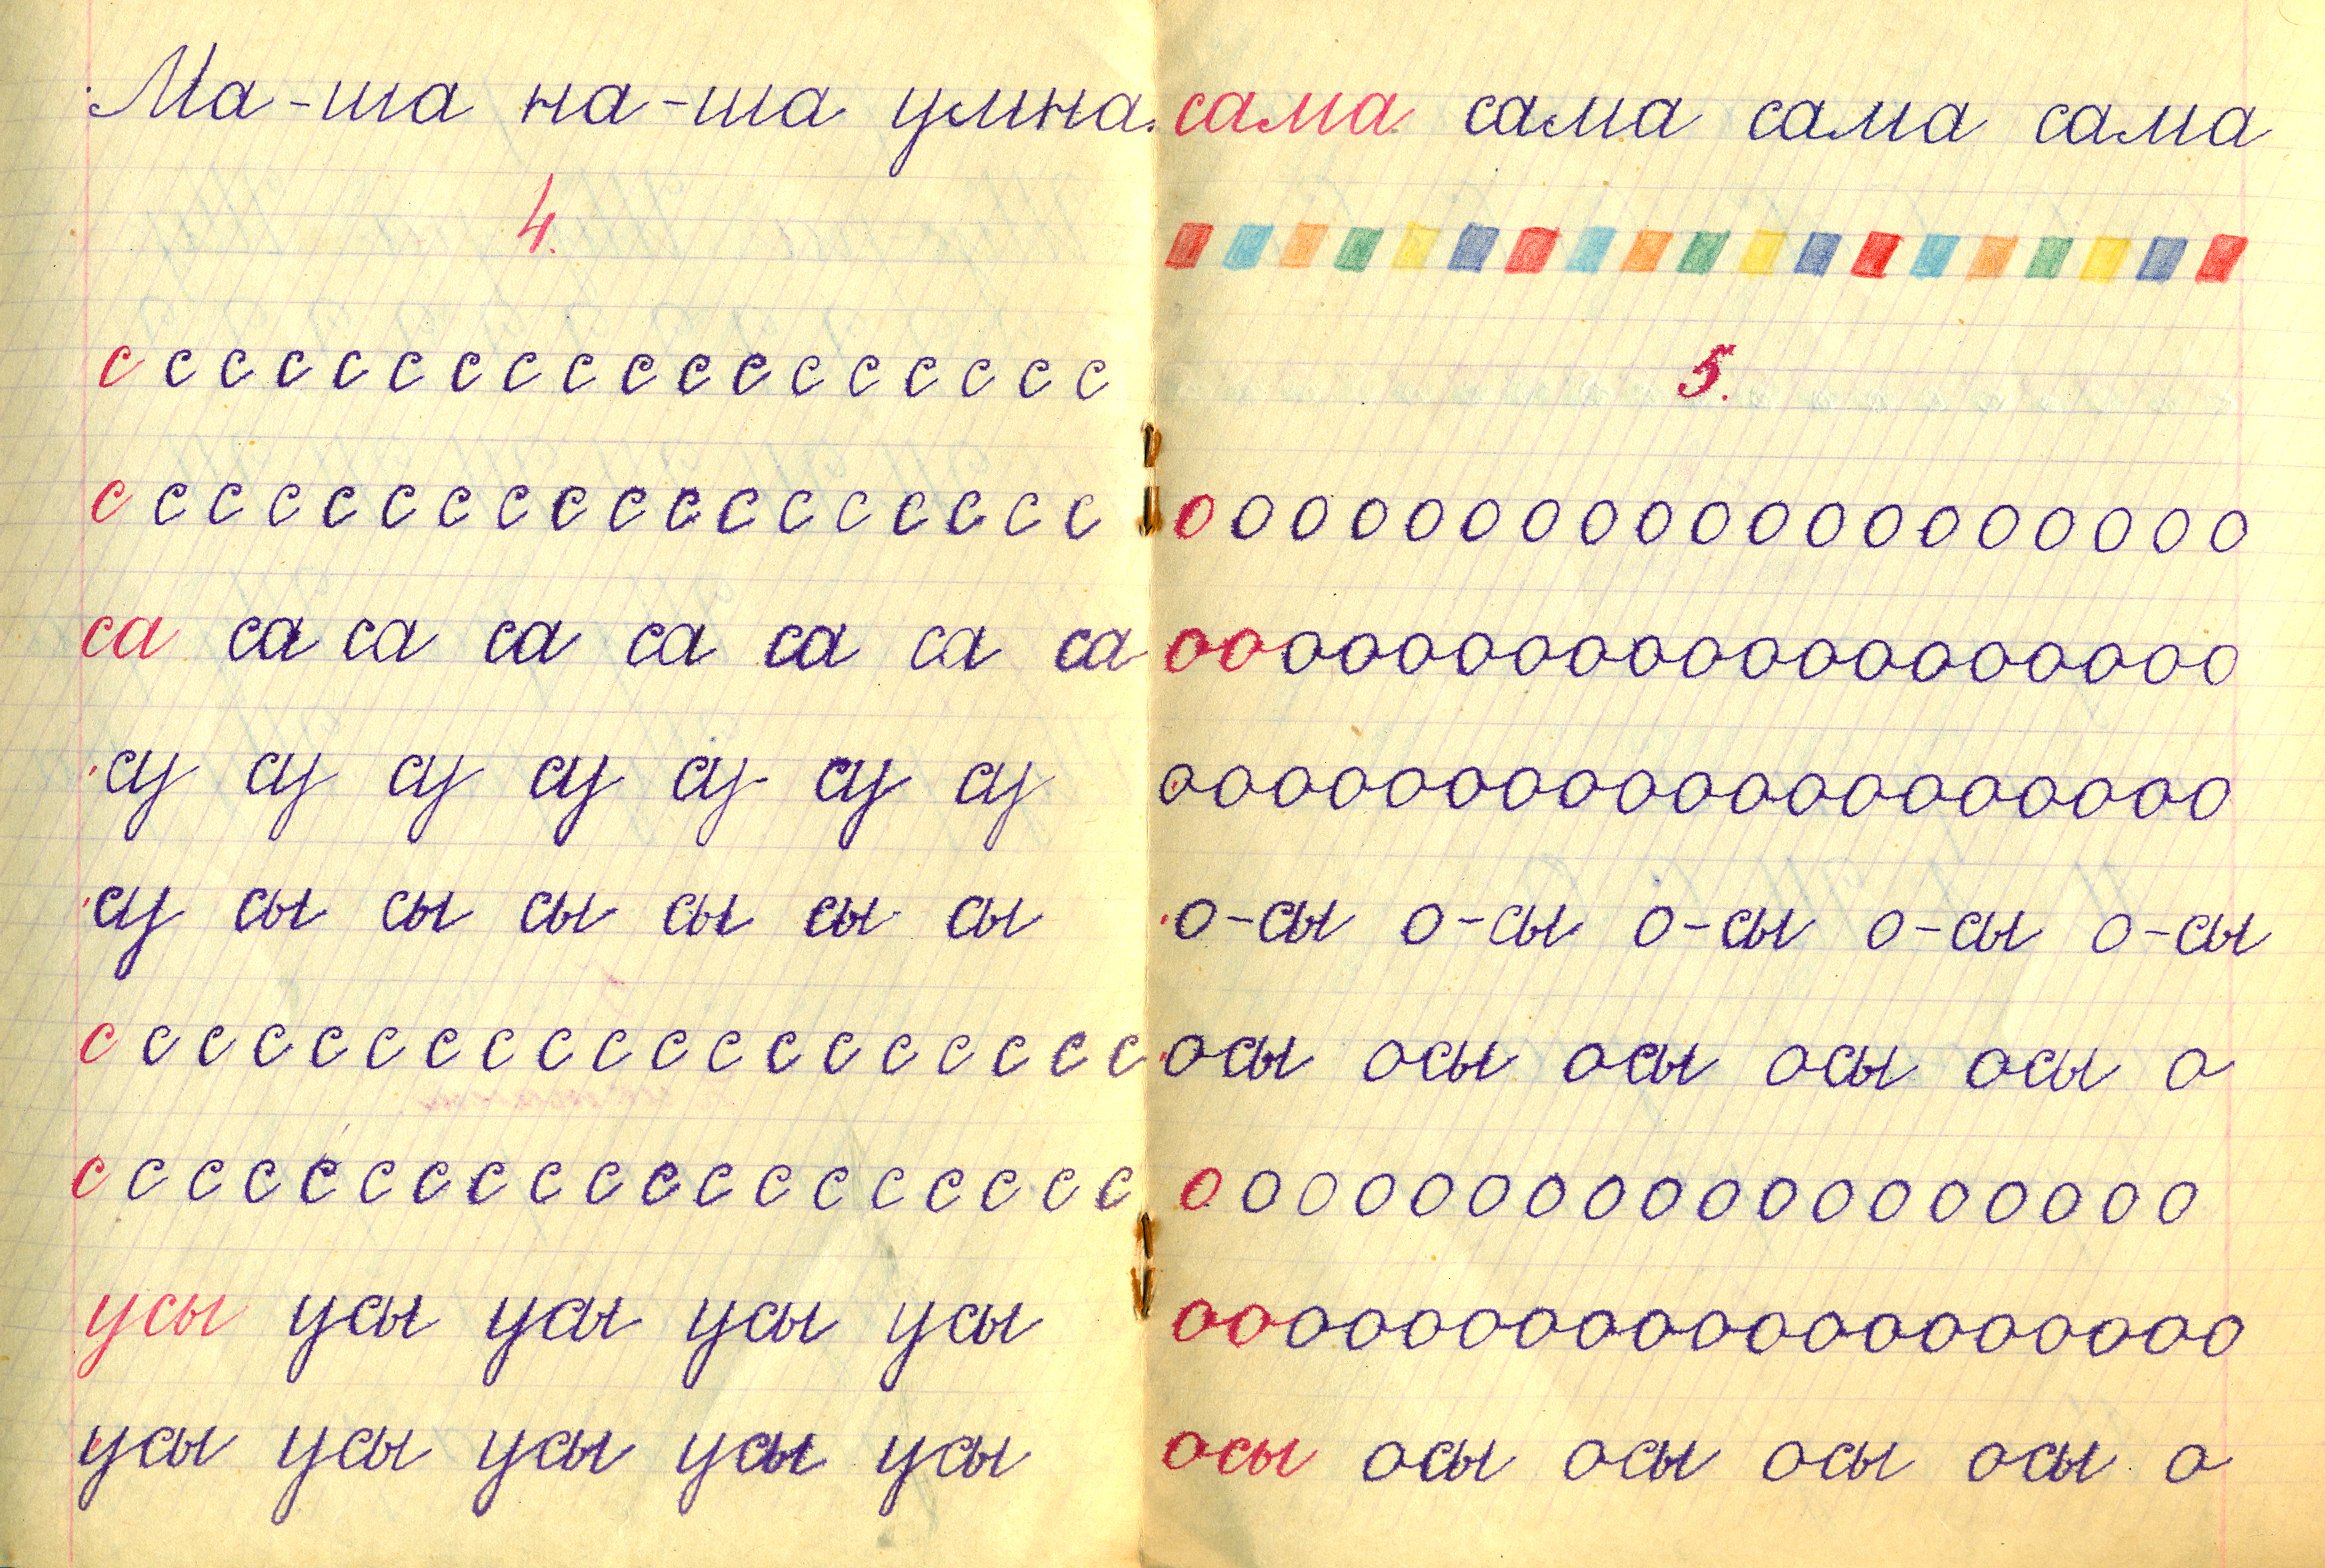 Ма-ша на-ша умна.
4.
с с с с с с с с с с с с с с с с с с
с с с с с с с с с с с с с с с с с с
са са са са са са са са
су су су су су су су
су сы сы сы сы сы сы
с с с с с с с с с с с с с с с с с с с
с с с с с с с с с с с с с с с с с с с
усы усы усы усы усы
усы усы усы усы усы
сама сама сама сама
5.
о о о о о о о о о о о о о о о о о о о
ооооооооооооооооооо
оооооооооооооооооооо
о-сы о-сы о-сы о-сы о-сы
осы осы осы осы осы о
о о о о о о о о о о о о о о о о о о
ооооооооооооооооооо
осы осы осы осы осы о